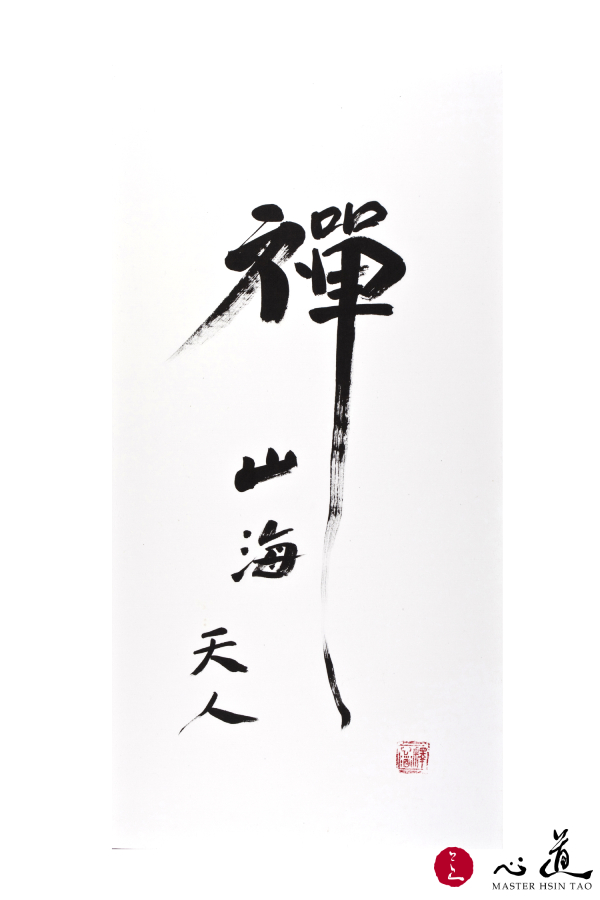 禪
山海
天人
心道
MASTER HSIN TAO